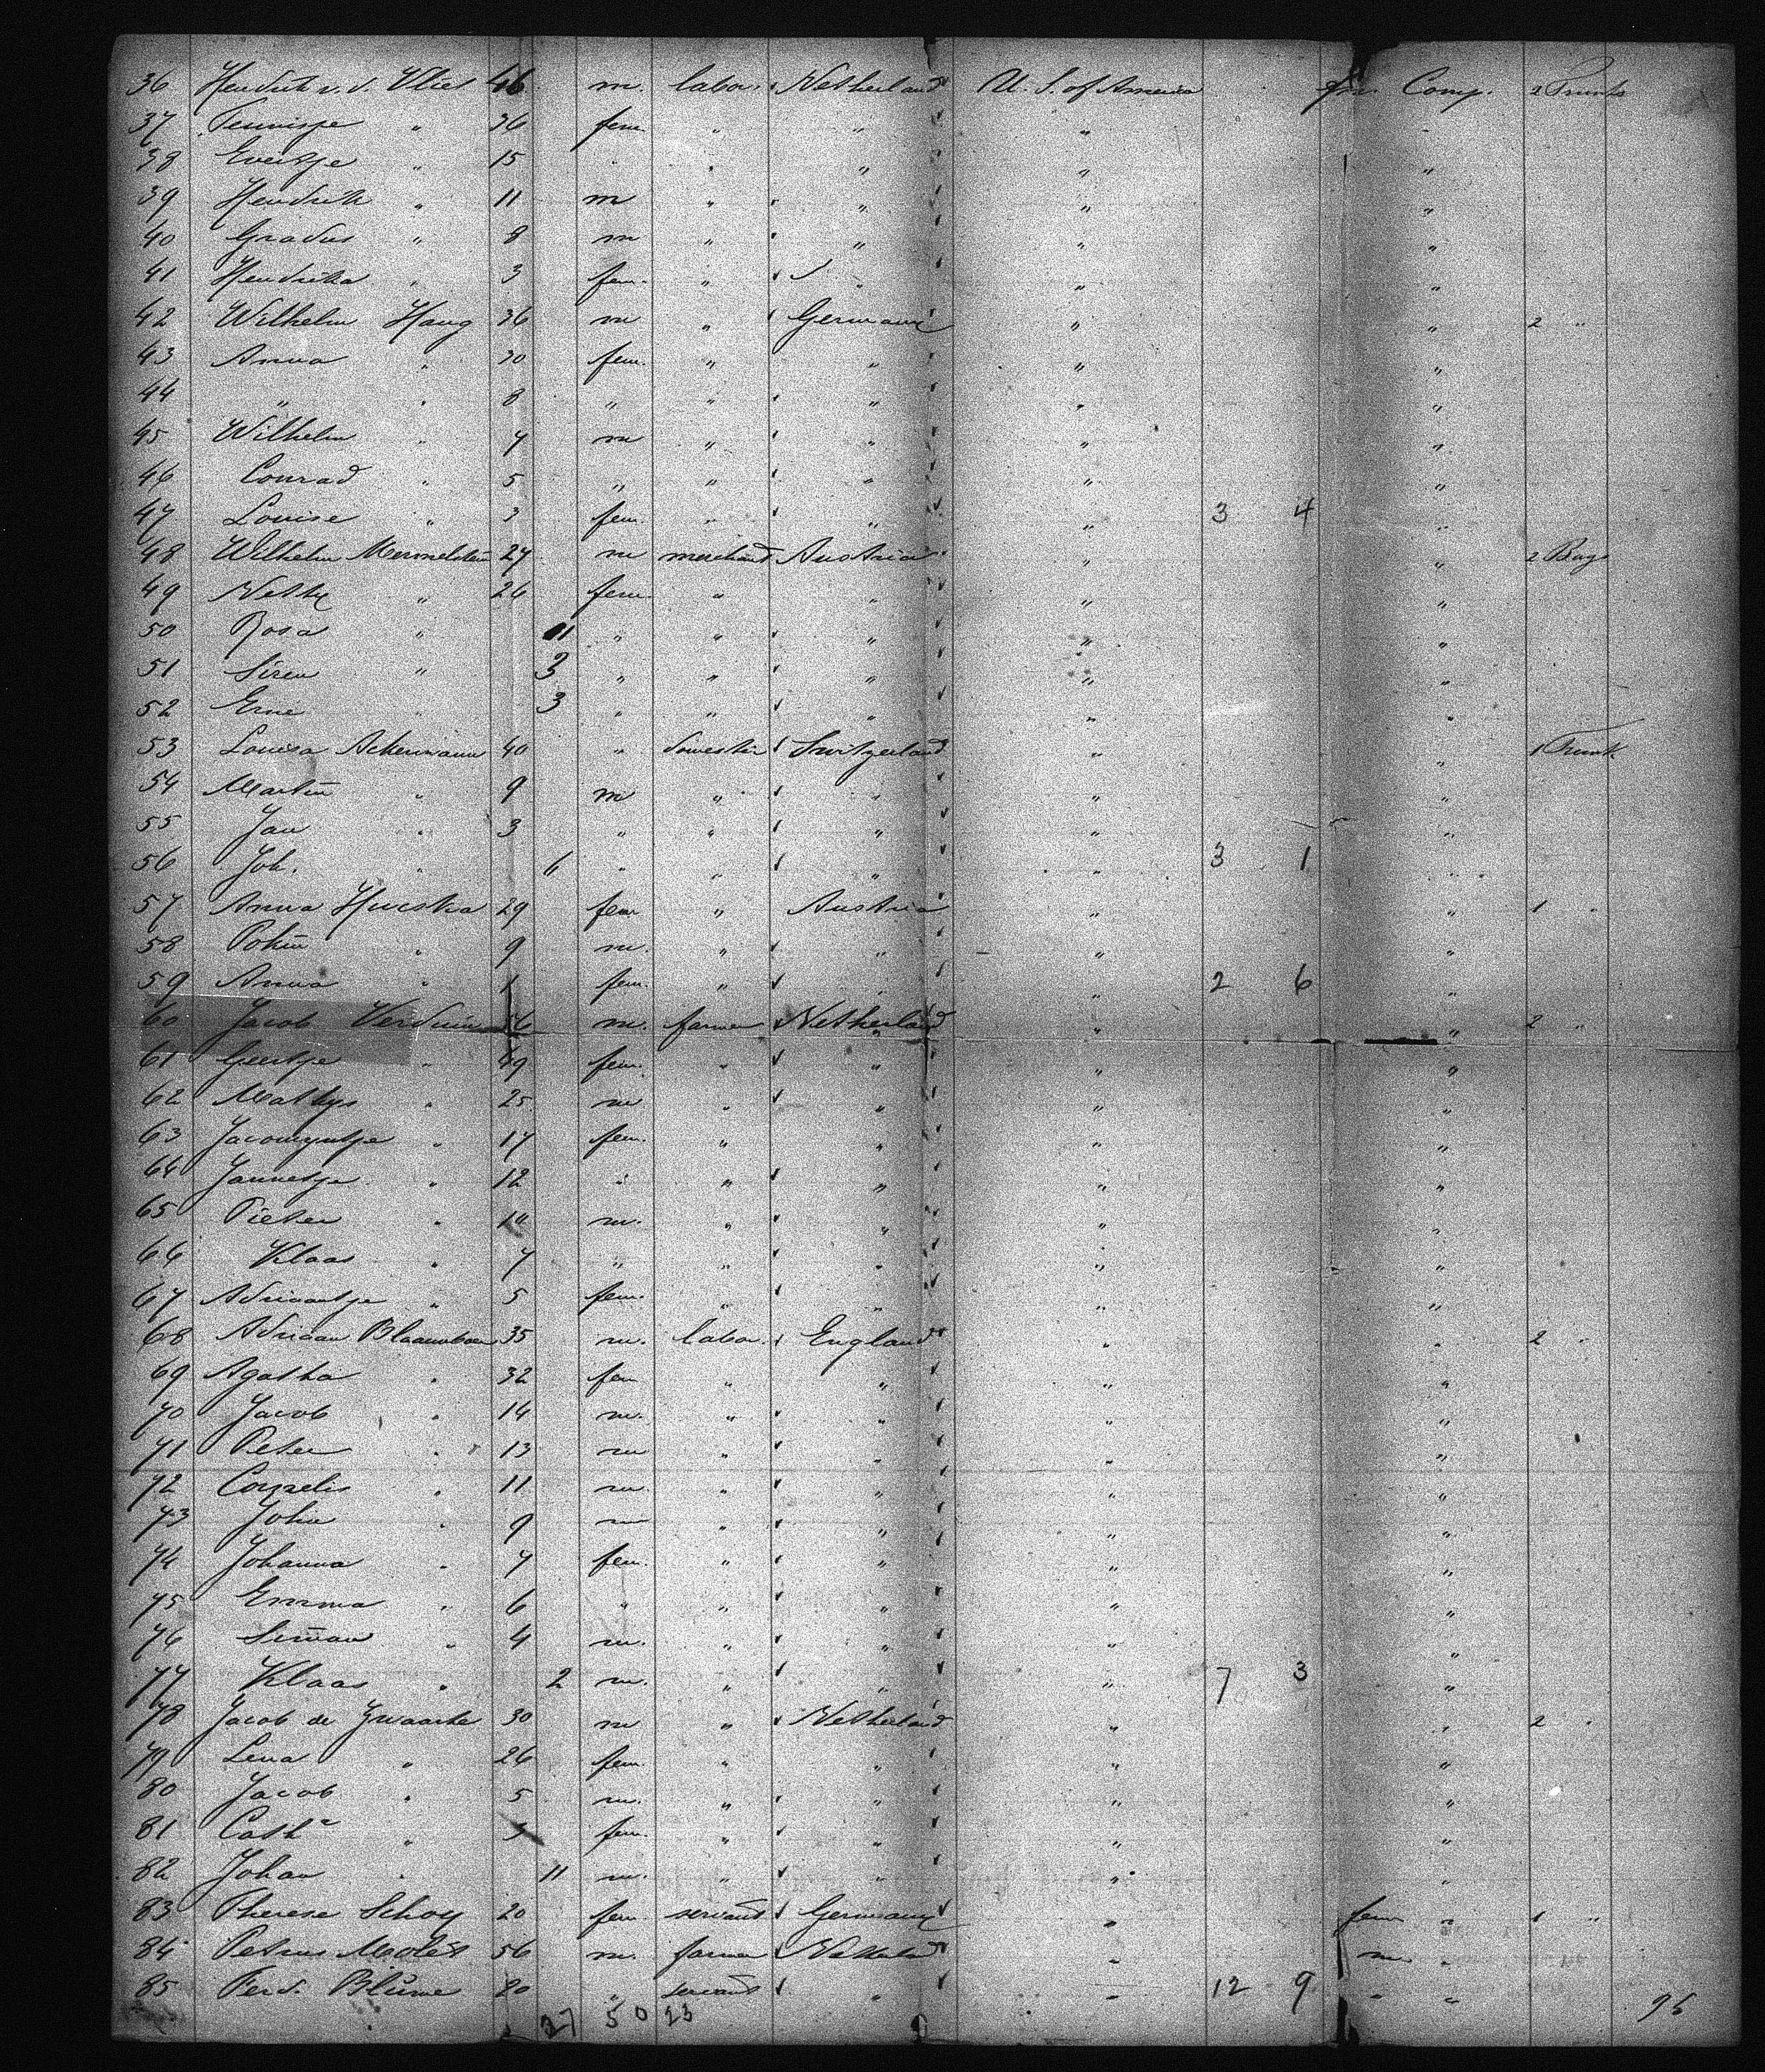 36 Hendrik v. d. Vliet 46 m. labor. Netherland U. S. of America fm. Comp. 2 Trunks
37 Teunisje " 36 fem. " " " "
38 Evertje " 15 " " " " "
39 Hendrik " 11 m " " " "
40 Gradus " 8 m " " " "
41 Hendrika " 3 fem. " " " "
42 Wilhelm Haug 36 m " Germany " " 2 "
43 Anna " 30 fem. " " " "
44 " " 8 " " " " "
45 Wilhelm " 7 m " " " "
46 Conrad " 5 " " " " "
47 Louise " 3 fem. " " " 3 4 "
48 Wilhelm Mermelstein 27 m merchant Austria " " 2 Bags
49 Netty " 26 fem. " " " "
50 Rosa " 11 " " " " "
51 Siren " 3 " " " " "
52 Erne " 3 " " " " "
53 Louisa Ackermann 40 " Switzerland " " 1 Trunk
54 Martin " 9 m " " " "
55 Jan " 3 " " " " "
56 Joh. " 6 " " " " 3 1 "
57 Anna 29 fem " Austria " " 1 "
58 " 9 m. " " " "
59 Anna " 1 fem. " " " 2 6 "
60 Jacob Verduin 56 m. farmer Netherland " " 2 "
61 Geertje " 49 fem. " " " "
62 Mathys " 25 m " " " "
63 Jacomyntje " 17 fem. " " " "
64 Jannetje " 12 " " " " "
65 Pieter " m. " " " "
66 Klaas " 7 " " " " "
67 Adriaantje " 5 fem. " " " "
68 Adriaan Blaauwboer 35 m. labor. England " " 2 "
69 Agatha " 32 fem " " " "
70 Jacob " 14 m. " " " "
71 Peter " 13 m " " " "
72 Cornelis " 11 m. " " " "
73 John " 9 m " " " "
74 Johanna " 7 fem. " " " "
75 Emma " 6 " " " " "
76 Simon " 4 m. " " " "
77 Klaas " 2 m. " " " 7 3 "
78 Jacob de Zwaarte 30 m " Netherland " " 2 "
79 Lena " 26 fem. " " " "
80 Jacob " 5 m. " " " "
81 Cath " 3 fem. " " " "
82 Johan " 11 m. " " " "
83 Therese Schoy 20 fem. servant Germany " fem " 1 "
84 Petrus 56 m. farmer Netherland " m. "
85 Ferd. Blüme 20 " servant " " 12 9 " "
27 50 23 95